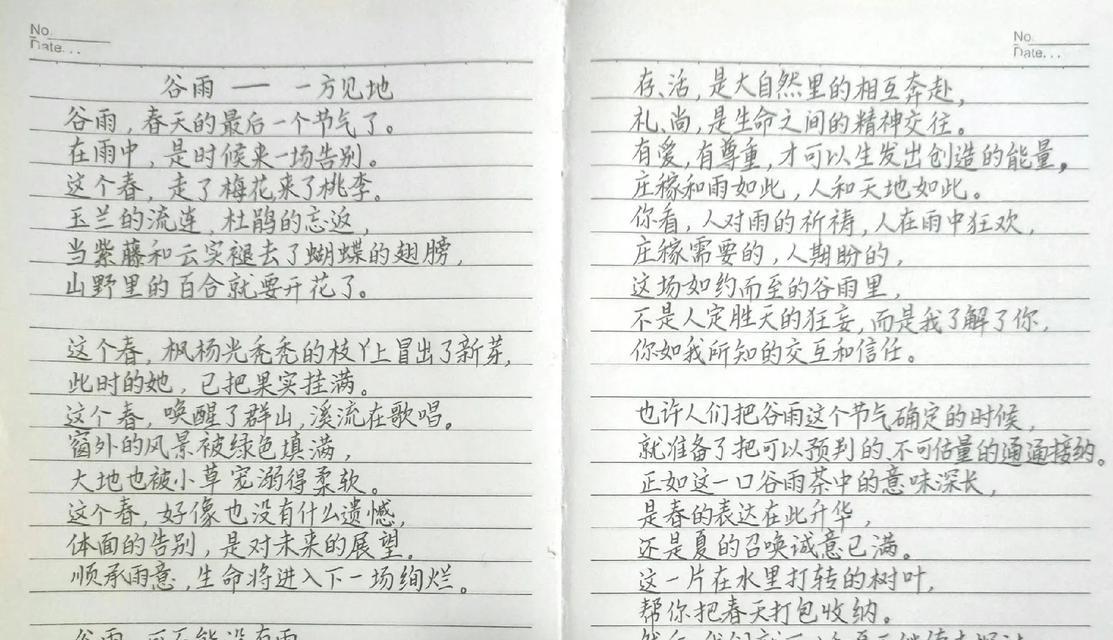 No.
Date...
谷雨 — 一方见地
谷雨，春天的最后一个节气了。
在雨中，是时候来一场告别。
这个春，走了梅花，来了桃李。
玉兰的流连，杜鹃的忘返，
当紫藤和云实褪去了蝴蝶的翅膀，
山野里的百合就要开花了。
这个春，枫杨光秃秃的枝丫上冒出了新芽，
此时的她，已把果实挂满。
这个春，唤醒了群山，溪流在歌唱。
窗外的风景被绿色填满，
大地也被小草宠溺得柔软。
这个春，好像也没有什么遗憾，
体面的告别，是对未来的展望。
顺承雨意，生命将进入下一场绚烂。
谷雨，可不能没有雨
No.
Date...
存、活，是大自然里的相互奔赴，
礼、尚，是生命之间的精神交往。
有爱，有尊重，才可以生发出创造的能量。
庄稼和雨如此，人和天地如此。
你看，人对雨的祈祷，人在雨中狂欢，
庄稼需要的，人期盼的，
这场如约而至的谷雨里，
不是人定胜天的狂妄，而是我了解了你，
你如我所知的交互和信任。
也许人们把谷雨这个节气确定的时候，
就准备了把可以预判的、不可估量的通通接纳。
正如这一口谷雨茶中的意味深长，
是春的表达在此升华，
还是夏的召唤诚意已满。
这一片在水里打转的树叶，
帮你把春天打包收纳。